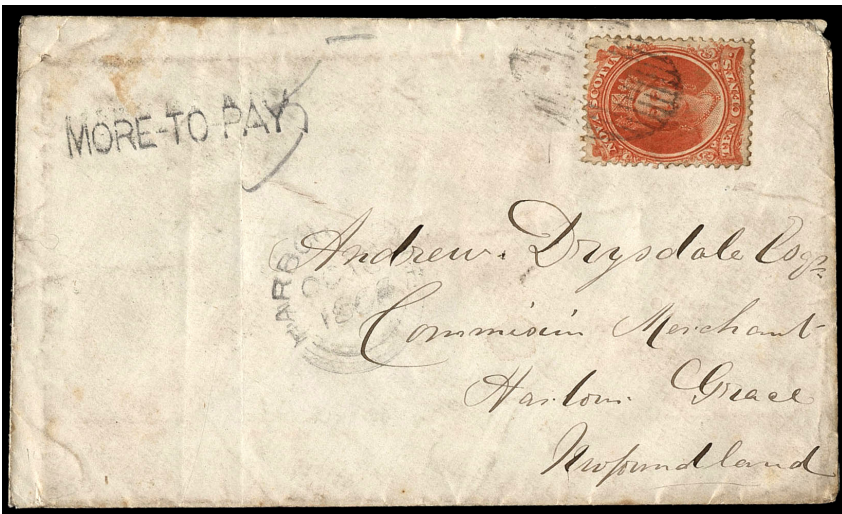 MORE-TO-PAY
5
NOVA SCOTIA
TEN CENTS
HARB
OC
18
Andrew. Drysdale Esqr
Commisin Merchant
Harbour Grace
Newfoundland